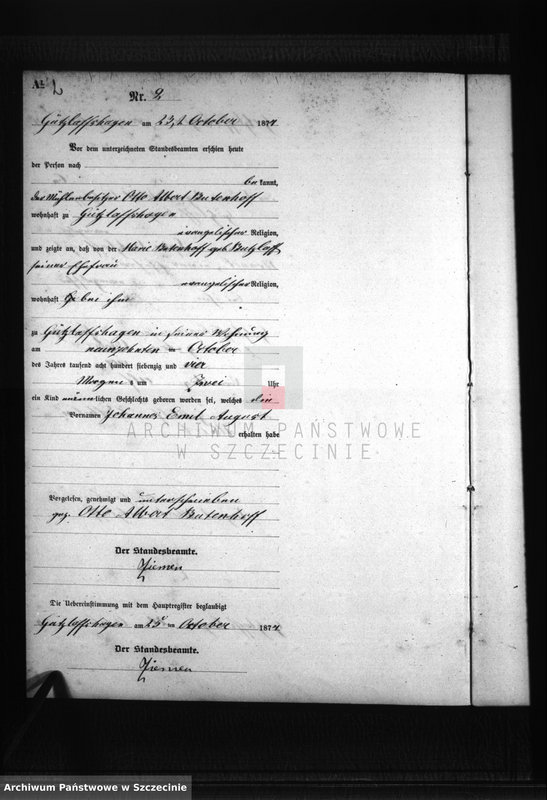 Nr. 2
Gützlaffshagen am 23. October 1874
Vor dem unterzeichneten Standesbeamten erschien heute
der Person nach
be kannt,
der Mühlenbesitzer Otto Albert Butenhoff
wohnhaft zu Gützlaffshagen
evangelischer Religion,
und zeigte an, daß von der Marie Butenhoff geb. Butzlaff
seiner Ehefrau
evangelischer Religion,
wohnhaft bei ihm
zu Gützlaffshagen in seiner Wohnung
am neunzehnten October
des Jahres tausend acht hundert siebenzig und vier
Morgens um zwei Uhr
ein Kind männlichen Geschlechts geboren worden sei, welches die
Vornamen Johannes Emil August
erhalten habe
ARCHIWUM PAŃSTWOWE
W SZCZECINIE
Vorgelesen, genehmigt und unterschrieben
gez. Otto Albert Butenhoff
Der Standesbeamte.
Ziemen
Die Uebereinstimmung mit dem Hauptregister beglaubigt
Gützlaffshagen am 23 ten October 1874
Der Standesbeamte.
Ziemen
Archiwum Państwowe w Szczecinie